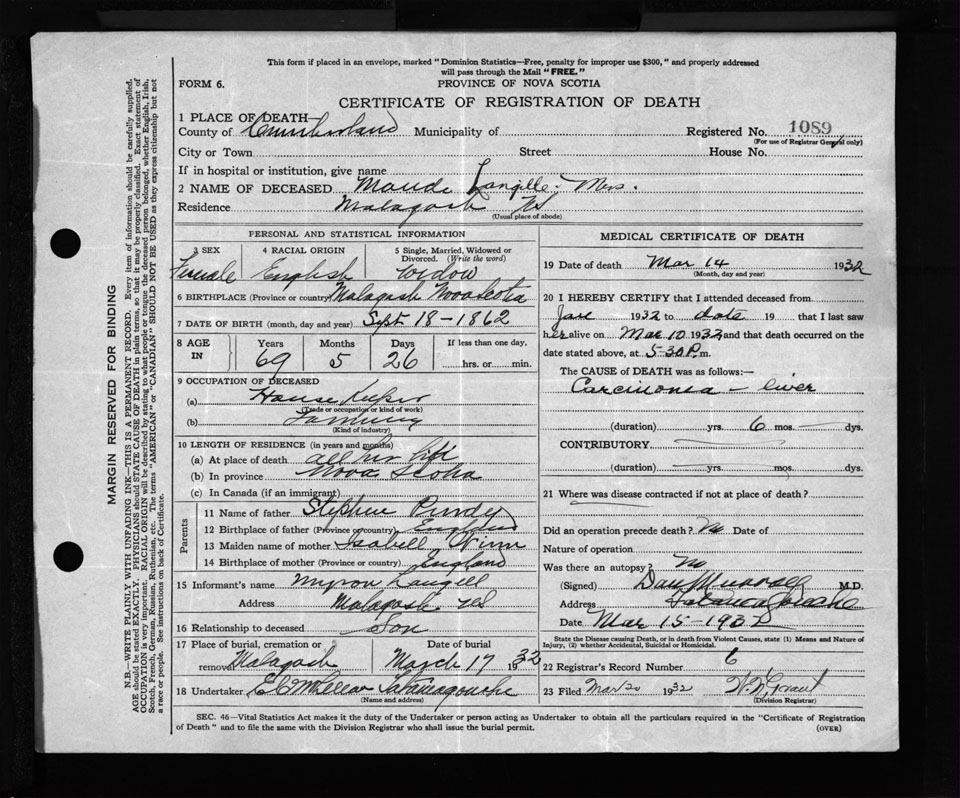 This form if placed in an envelope, marked "Dominion Statistics—Free, penalty for improper use $300," and properly addressed
will pass through the Mail "FREE."
FORM 6.
PROVINCE OF NOVA SCOTIA
CERTIFICATE OF REGISTRATION OF DEATH
1 PLACE OF DEATH
County of Cumberland Municipality of Registered No. 1089
(For use of Registrar General only)
City or Town Street House No.
If in hospital or institution, give name
2 NAME OF DECEASED Maude Langille Mrs.
Residence Malagash NS
(Usual place of abode)
PERSONAL AND STATISTICAL INFORMATION
3 SEX Female
4 RACIAL ORIGIN English
5 Single, Married, Widowed or Divorced. (Write the word) Widow
6 BIRTHPLACE (Province or country) Malagash Nova Scotia
7 DATE OF BIRTH (month, day and year) Sept 18-1862
8 AGE IN Years 69 Months 5 Days 26 If less than one day, hrs. or min.
9 OCCUPATION OF DECEASED
(a) House Keeper
(Trade or occupation or kind of work)
(b) Farming
(Kind of industry)
10 LENGTH OF RESIDENCE (in years and months)
(a) At place of death all her life
(b) In province Nova Scotia
(c) In Canada (if an immigrant)
Parents
11 Name of father Stephen Purdy
12 Birthplace of father (Province or country) England
13 Maiden name of mother Isabell
14 Birthplace of mother (Province or country) England
15 Informant's name Myron Langill
Address Malagash NS
16 Relationship to deceased Son
17 Place of burial, cremation or removal Malagash
Date of burial March 17 1932
18 Undertaker Tatamagouche
(Name and address)
MEDICAL CERTIFICATE OF DEATH
19 Date of death Mar 14 1932
(Month, day and year)
20 I HEREBY CERTIFY that I attended deceased from
Jan 1932 to date 19 that I last saw
her alive on Mar 10 1932 and that death occurred on the
date stated above, at 5-30 P.m.
The CAUSE OF DEATH was as follows:—
Carcinoma - liver
(duration) yrs. 6 mos. dys.
CONTRIBUTORY
(duration) yrs. mos. dys.
21 Where was disease contracted if not at place of death?
Did an operation precede death? No Date of
Nature of operation
Was there an autopsy? No
(Signed) Dan Murray M.D.
Address Tatamagouche
Date Mar 15-1932
State the Disease causing Death, or in death from Violent Causes, state (1) Means and Nature of
Injury, (2) whether Accidental, Suicidal or Homicidal.
22 Registrar's Record Number 6
23 Filed Mar 20 1932 Grant
(Division Registrar)
SEC. 46—Vital Statistics Act makes it the duty of the Undertaker or person acting as Undertaker to obtain all the particulars required in the "Certificate of Registration
of Death" and to file the same with the Division Registrar who shall issue the burial permit.
(OVER)
MARGIN RESERVED FOR BINDING
N.B.—WRITE PLAINLY WITH UNFADING INK—THIS IS A PERMANENT RECORD. Every item of information should be carefully supplied.
AGE should be stated EXACTLY. PHYSICIANS should STATE CAUSE OF DEATH in plain terms, so that it may be properly classified. Exact statement of
OCCUPATION is very important. RACIAL ORIGIN will be described by stating to what people or tongue the deceased person belonged, whether English, Irish,
Scotch, French, German, Russian, Ruthenian, etc. The terms "AMERICAN" or "CANADIAN" SHOULD NOT BE USED as they express citizenship but not
a race or people. See instructions on back of Certificate.